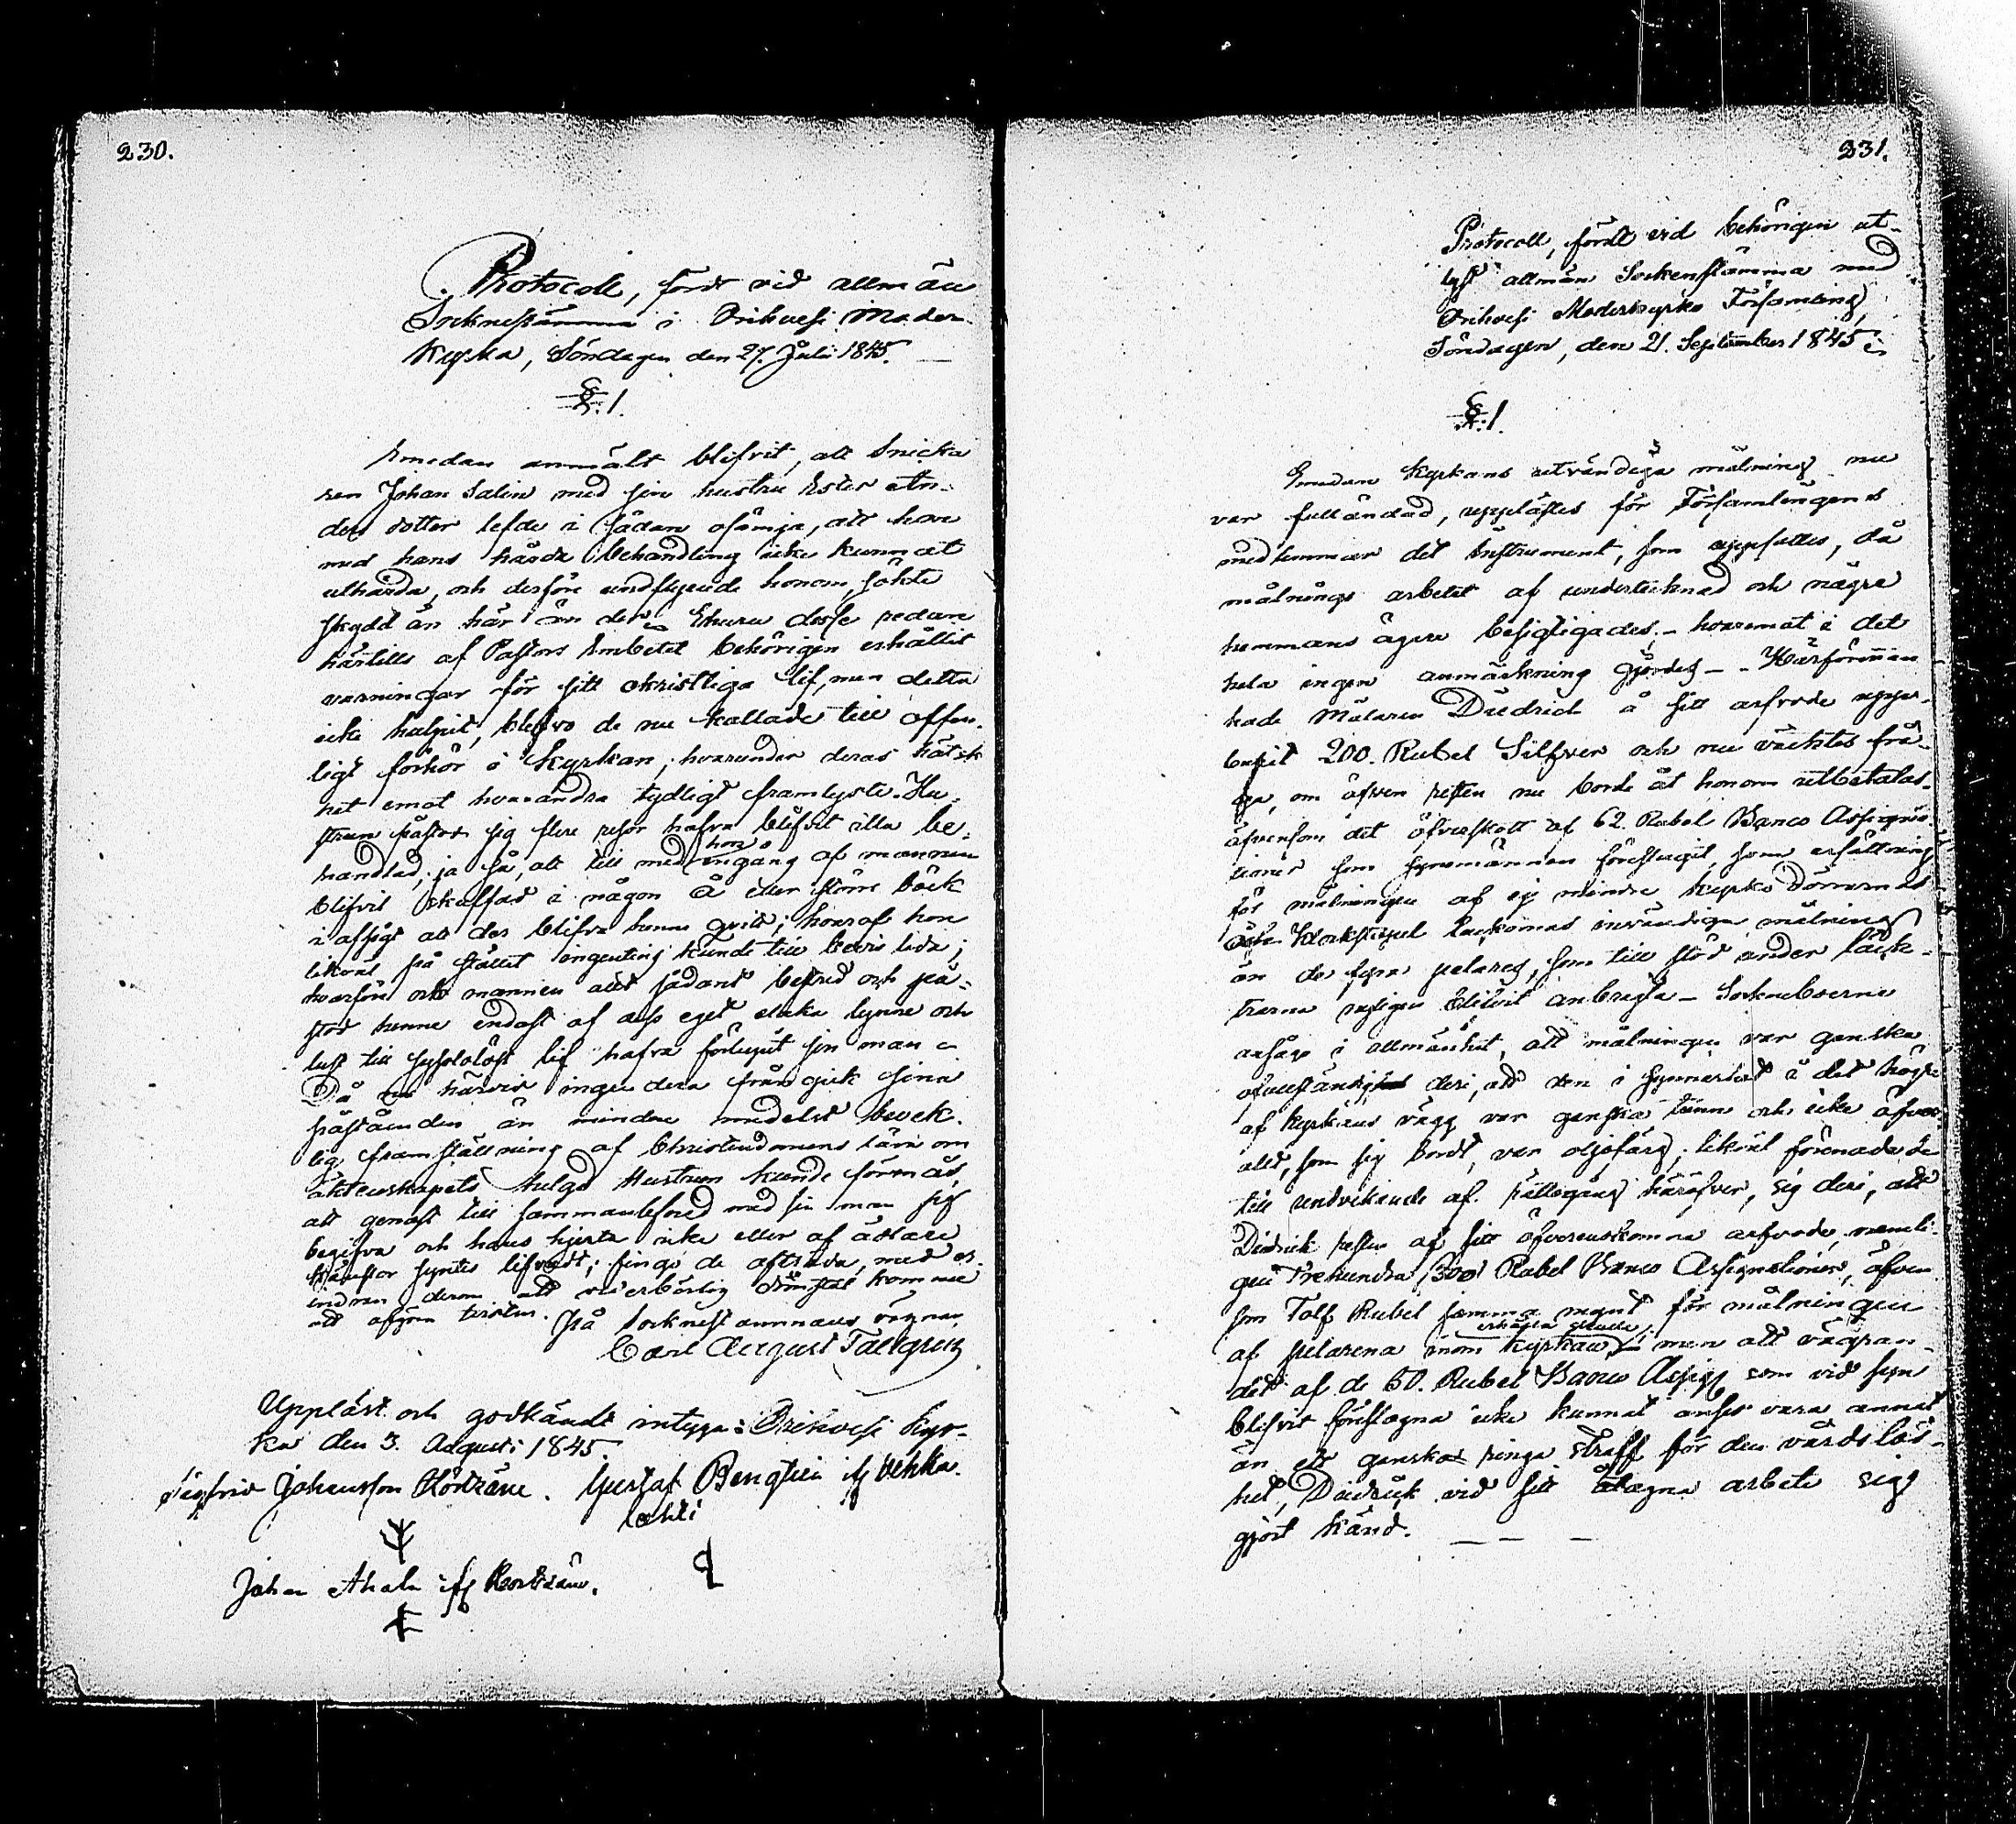 230.
Protocoll, fördt vid allmän
Socknestämma i Orihvesi Moder-
kyrka, Söndagen den 27. Julii 1845. —
§. 1.
Emedan anmält blifvit, att Snicka
ren Johan Salin med sin hustru Ester
dotter lefde i sådan osämja, att hon
med hans hårda behandling icke kunnat
uthärda, och derföre undflyende honom, sökte
skydd än här än der; Ehuru desse redan
härtills af Pastors Embetet behörigen erhållit
varningar för sitt okristliga lif, men detta
icke hulpit, blefvo de nu kallade till offen-
ligt förhör i Kyrkan, hvarunder deras hätsk
het emot hvarandra tydligt framlyste. Hu-
strun påstod sig flere resor hafva blifvit illa be-
handlad, ja så, att till med hon engång af mannen
blifvit skuffad i någon Å eller större bäck
i afsigt att der blifva henne qvitt; hvaraf hon
likväl på stället ingenting kunde till bevis leda;
hvarföre och mannen allt sådant bestred och på-
stod henne endast af dess eget elaka lynne och
lust till sysslolöst lif hafva förlupit sin man
Då nu härvid ingendera frångick sina
påståenden än mindre medelst bevek-
lig framställning af Christendomens lära om
äktenskapets helgd Hustrun kunde förmås,
att genast till sammanlefnad med sin man sig
begifva och hans hjerta icke eller af ädlare
känslor syntes lifvadt; fingo de afträda, med er-
indran derom att vederbörlig domstol komme
att afgöra tvisten. På Socknestämmans vägnar,
Carl August Tallgren
Uppläst och godkändt intyga: Orihvesi Kyr-
ka den 3. Augusti 1845.
Sigfrid Johansson Gustaf Bengtsson if Vehka
lahti
Johan Ahala if
231.
Protocoll, fördt vid behörigen ut-
lyst allmän Sockenstämma med
Orihvesi Moderkyrko Församling,
Söndagen, den 21. September 1845
§. 1.
Emedan Kyrkans utvändiga målning nu
var fulländad, upplästes för Församlingens
medlemmar det Instrument, som uppsattes, då
målnings arbetet af undertecknad och några
hemmans ägare besigtigades, — hvaremot i det
hela ingen anmärkning gjordes — Härförinnan
hade Målaren Diedrich å sitt arfvode uppbu-
burit 200. Rubel Silfver och nu väcktes frå-
ga, om äfven resten nu borde åt honom utbetalas
äfvensom det öfverskott af 62. Rubel Banco Assigna-
tioner som synemännen föreslagit, som ersättning
för målningen af ej mindre kyrko dörrarnas
och Klockstapel luckornas invändiga målning
än de fyra pelares, som till stöd under läck-
trarna nyligen blifvit anbragta — Sockneboerna
ansågo i allmänhet, att målningen var ganska
ofullständig deri, att den i synnerhet å det högre
af kyrkans vägg var ganska tunn och icke öfver
allt, som sig bordt, var oljefärg; likväl förenade de
till undvikande af rättegång häröfver, sig deri, att
Diedrich resten af sitt öfverenskomna arfvode, nemli-
gen Trehundra, 300, Rubel Banco Assignationer, äfven
som Tolf Rubel samma mynt för målningen
af pelarena inom kyrkan, erhålla skulle; men att vägran-
det af de 50. Rubel Banco Assign. som vid syn
blifvit föreslagna icke kunnat anses vara annat
än ett ganska ringa straff för den vårdslös-
het, Diedrich vid sitt åtagna arbete sig
gjort känd. — — —